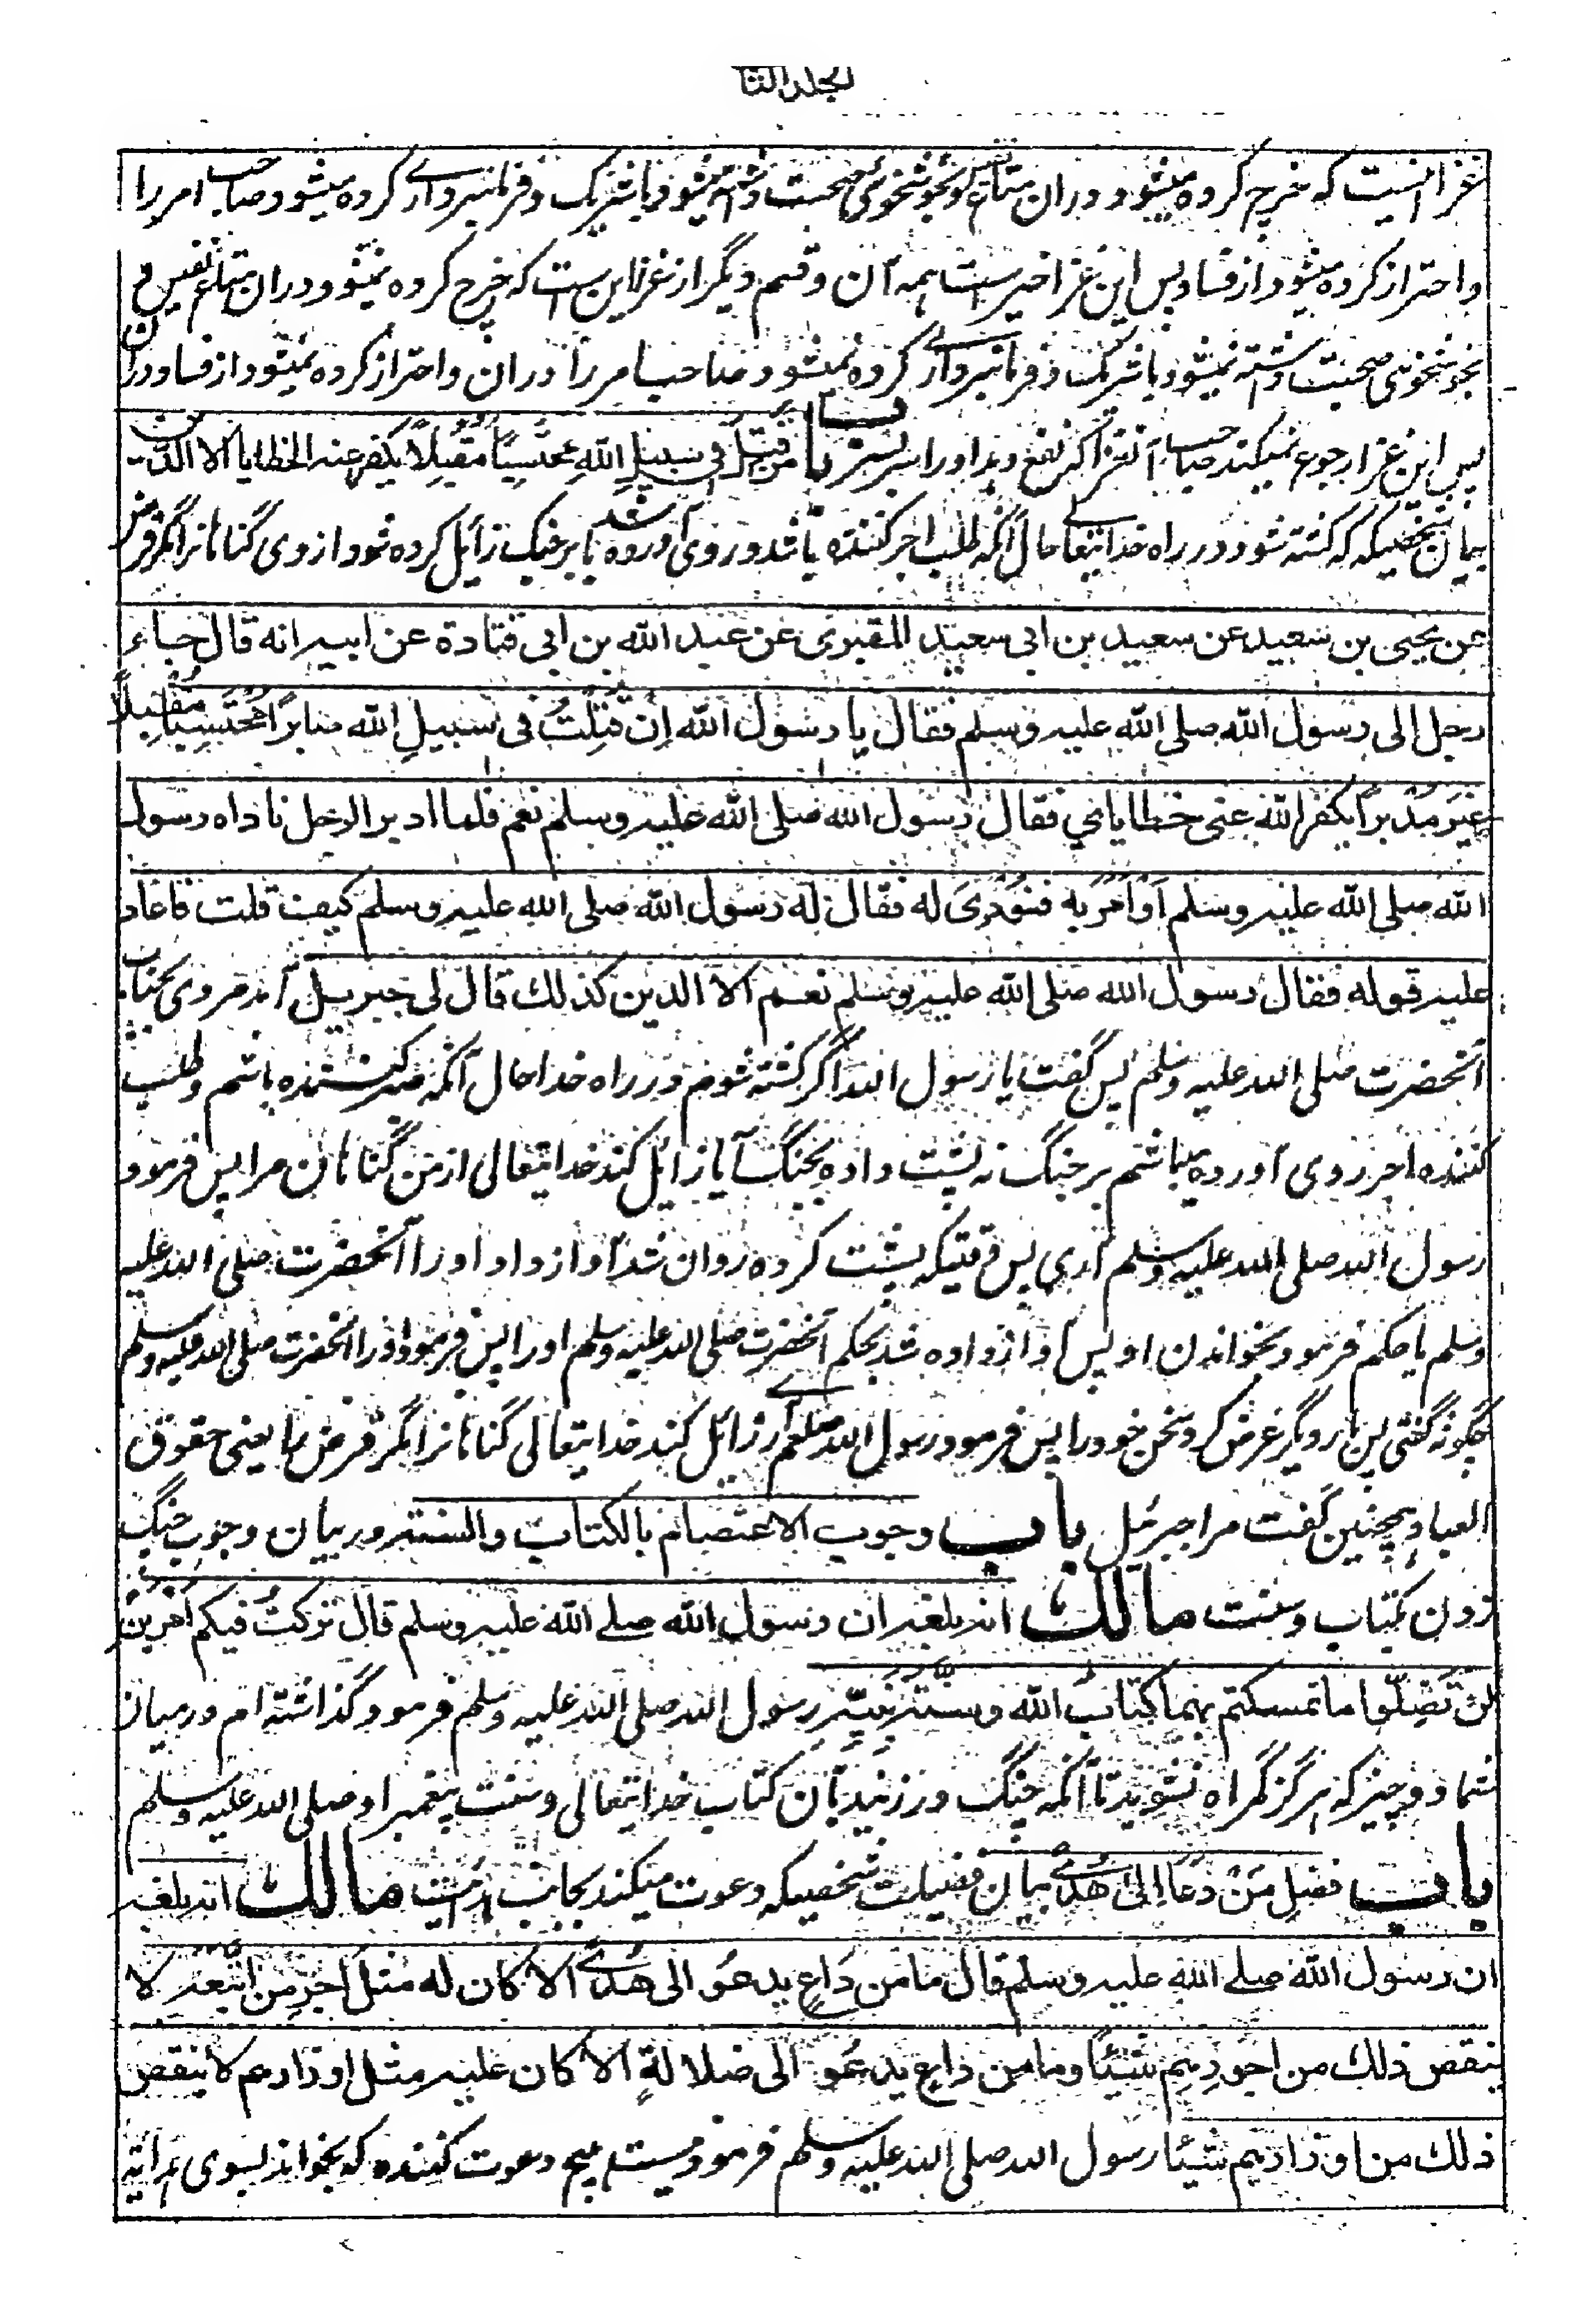 المجلد الثا
غزا اینست که خرج کرده میشود دران متاع نیکو بخوشخوئی صحبت داشته میشود با شریک و فرمانبرداری کرده میشود صاحب امر را
و احتراز کرده میشود از فساد پس این غزا خیر است همه آن و قسم دیگر از غزا این ست که خرج کرده نمیشود دران متاع نفیس و
بخوشخوئی صحبت داشته نمیشود با شریک و فرمانبرداری کرده نمیشود صاحب امر را دران و احتراز کرده نمیشود از فساد دران
پس این غزا رجوع نمیکند صاحب آنقدر اکثر نفع دید او را سربسر باب من قتل فی سبیل الله محتسبًا مقبلًا یکفر عنه الخطایا الا الدین
بیان شخصیکه کشته شود در راه خدایتعالی حال آنکه طلب اجر کننده باشد و روی آورده باشد بر جنگ زائل کرده شود از وی گناهان مگر قرض
عن یحیی بن سعید عن سعید بن ابی سعید المقبری عن عبد الله بن ابی قتادة عن ابیه انه قال جاء
رجل الی رسول الله صلی الله علیه وسلم فقال یا رسول الله إن قُتِلْتُ فی سبیلِ الله صابرًا مُحْتَسِبًا مُقْبِلًا
غیرَ مُدْبرٍ أیکفر الله عنی خطایای فقال رسول الله صلی الله علیه وسلم نعم فلما ادبر الرجل ناداه رسول
الله صلی الله علیه وسلم اَوْ اَمَرَ به فنُوْدِیَ له فقال له رسول الله صلی الله علیه وسلم کیف قلت فاعاد
علیه قوله فقال رسول الله صلی الله علیه وسلم نعم الا الدین کذلك قال لی جبریل آمد مردی بجناب
آنحضرت صلی الله علیه وسلم پس گفت یا رسول الله اگر کشته شوم در راه خدا حال آنکه صبر کننده باشم و طلب
کننده اجر روی آورده میباشم بر جنگ نه پشت داده بجنگ آیا زائل کند خدایتعالی از من گناهان مرا پس فرمود
رسول الله صلی الله علیه وسلم آری پس وقتیکه پشت کرده روان شد آواز داد او را آنحضرت صلی الله علیه
وسلم یا حکم فرمود بخواندن او پس آواز داده شد بحکم آنحضرت صلی الله علیه وسلم او را پس فرمود او را آنحضرت صلی الله علیه وسلم
چگونه گفتی پس بار دیگر عرض کرد سخن خود را پس فرمود رسول الله صلعم آری زائل کند خدایتعالی گناهانرا مگر قرض را یعنی حقوق
العباد همچنین گفت مرا جبرئیل باب وجوب الاعتصام بالکتاب والسنة در بیان وجوب چنگ
زدن بکتاب و سنت مالك انه بلغه ان رسول الله صلی الله علیه وسلم قال ترکتُ فیکم اَمْرَین
لن تَضِلّوا ما تمسکتم بهما کتابَ الله وسنّةَ نبیّه رسول الله صلی الله علیه وسلم فرمود گذاشته ام درمیان
شما دو چیز که هرگز گمراه نشوید تا آنکه چنگ در زنید بآن کتاب خدایتعالی و سنت پیغمبر او صلی الله علیه وسلم
باب فضل مَنْ دَعَا اِلیٰ هُدًی بیان فضیلت شخصیکه دعوت میکند بجانب راستی مالك انه بلغه
ان رسول الله صلی الله علیه وسلم قال ما من دَاعٍ یدعُو الی هُدًی الا کان له مثل اجرِ من اتبعه لا
ینقص ذلك من اجورِهِم شیئًا وما من داعٍ یدعُو الی ضلالةٍ الا کان علیه مثل اوزارهم لا ینقص
ذلك من اوزارهم شیئًا رسول الله صلی الله علیه وسلم فرمود نیست هیچ دعوت کننده که بخواند بسوی هدایة